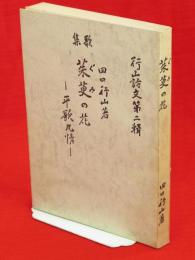 行山詩文第二輯
歌集
茱萸の花
ぐみ
田口行山著
―平歌凡情―
茱萸の花
ぐみ
田口行山著